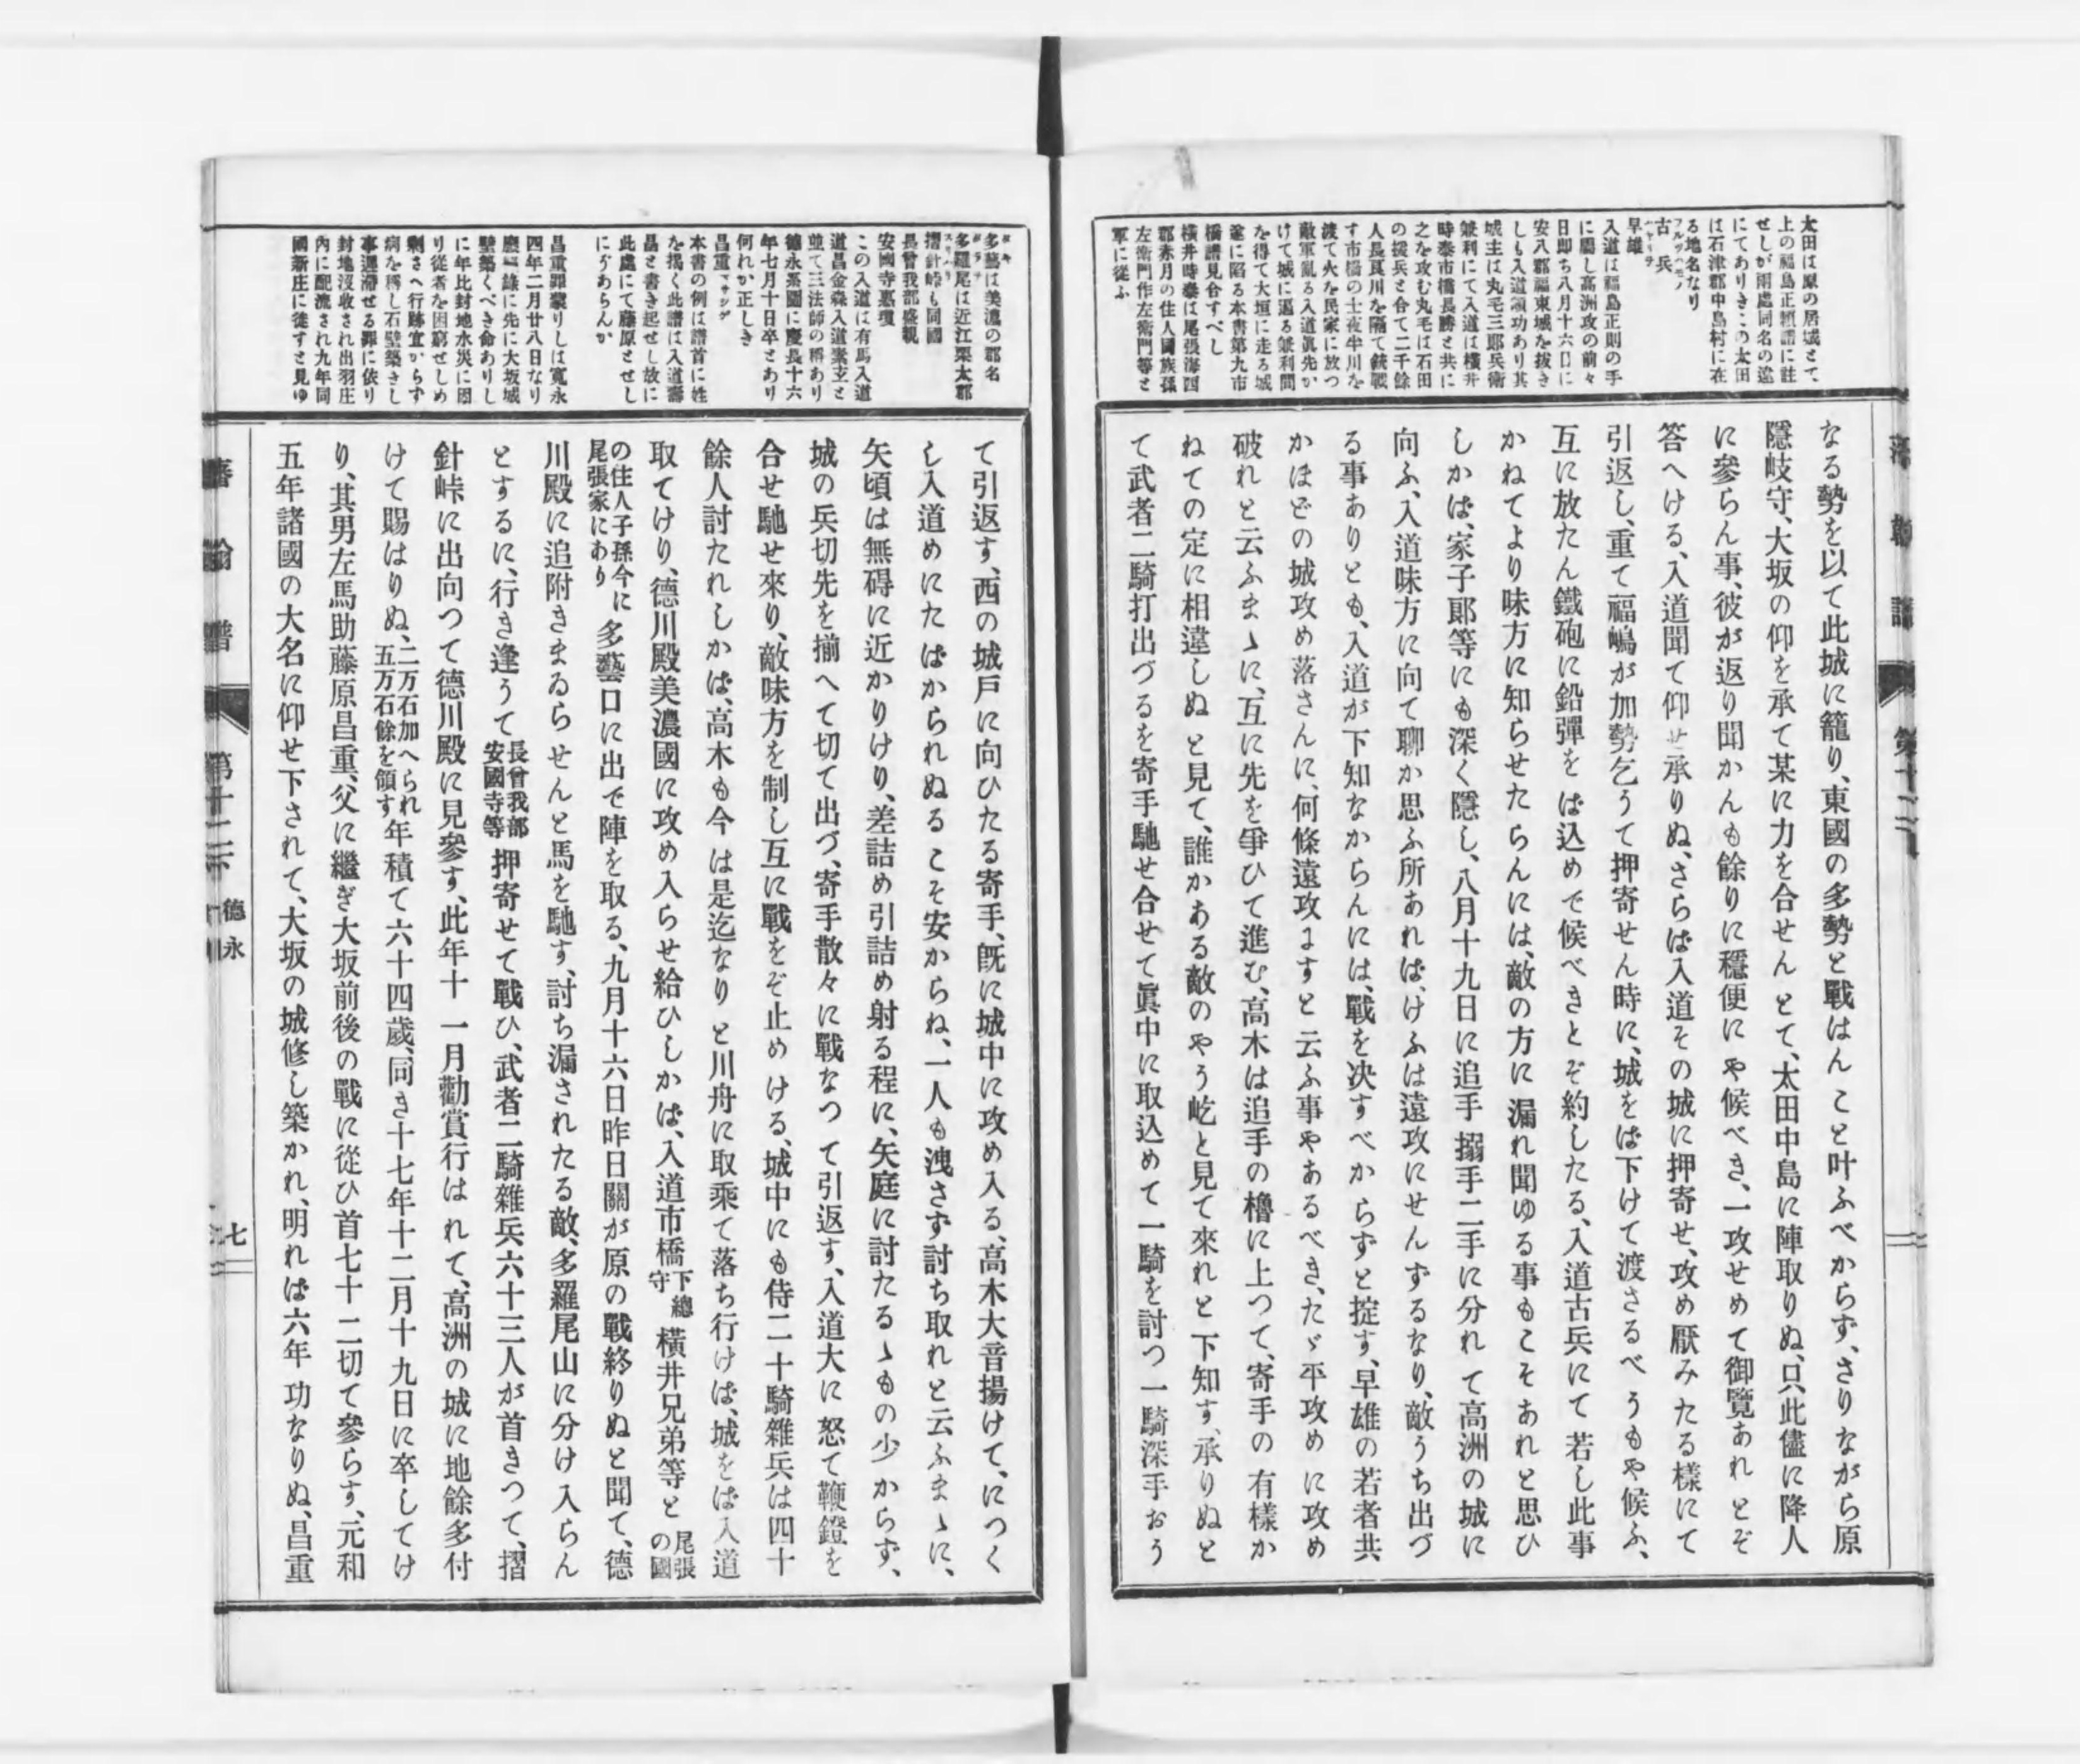 太田は原の居城とて、
上の福島正頼譜に註
せしが兩處同名の遠
にてありきこの太田
は石津郡中島村に在
る地名なり
古兵
早雄
入道は福島正則の手
に屬し高洲攻の前々
日即ち八月十六日に
安八郡福東城を拔き
しも入道頭功あり其
城主は丸毛三郎兵衛
兼利にて入道は横井
時泰市橋長勝と共に
之を攻む丸毛は石田
の援兵と合て二千餘
人長良川を隔て銃戰
す市橋の士夜半川を
渡て火を民家に放つ
敵軍亂る入道眞先か
けて城に逼る兼利間
を得て大垣に走る城
遂に陷る本書第九市
橋譜見合すべし
横井時泰は尾張海西
郡赤月の住人國族孫
左衛門作左衛門等と
軍に從ふ
なる勢を以て此城に籠り、東國の多勢と戰はんこと叶ふべからず、さりながら原
隱岐守、大坂の仰を承て某に力を合せんとて、太田中島に陣取りぬ、只此儘に降人
に參らん事、彼が返り聞かんも餘りに穩便にや候べき、一攻せめて御覽あれとぞ
答へける、入道聞て仰せ承りぬ、さらば入道その城に押寄せ、攻め厭みたる樣にて
引返し、重て福嶋が加勢乞うて押寄せん時に、城をば下けて渡さるべうもや候ふ、
互に放たん鐵砲に鉛彈をば込めで候べきとぞ約したる、入道古兵にて若し此事
かねてより味方に知らせたらんには、敵の方に漏れ聞ゆる事もこそあれと思ひ
しかば、家子郞等にも深く隱し、八月十九日に追手搦手二手に分れて高洲の城に
向ふ、入道味方に向て聊か思ふ所あれば、けふは遠攻にせんずるなり、敵うち出づ
る事ありとも、入道が下知なからんには、戰を決すべからずと掟す、早雄の若者共
かほどの城攻め落さんに、何條遠攻ますと云ふ事やあるべき、たゞ平攻めに攻め
破れと云ふまゝに、互に先を爭ひて進む、高木は追手の櫓に上つて、寄手の有樣か
ねての定に相違しぬと見て、誰かある敵のやう屹と見て來れと下知す、承りぬと
て武者二騎打出づるを寄手馳せ合せて眞中に取込めて一騎を討つ一騎深手おう
多藝は美濃の郡名
多羅尾は近江栗太郡
摺針峠も同國
長曾我部盛親
安國寺惠瓊
この入道は有馬入道
道昌金森入道素玄と
並て三法師の稱あり
德永系圖に慶長十六
年七月十日卒とあり
何れか正しき
昌重
本書の例は譜首に姓
を掲く此譜は入道壽
昌と書き起せし故に
此處にて藤原とせし
にゝあらんか
昌重罪蒙りしは寬永
四年二月廿八日なり
廢錄に先に大坂城
壁築くべき命ありし
に年比封地水災に困
り從者を困窮せしめ
剩さへ行跡宜からず
病を稱し石壁築きし
事遲滯せる罪に依り
封地沒收され出羽庄
內に配流され九年同
國新庄に徙すと見ゆ
て引返す、西の城戶に向ひたる寄手、旣に城中に攻め入る、高木大音揚けて、につく
し入道めにたばかられぬるこそ安からね、一人も洩さず討ち取れと云ふまゝに、
矢頃は無碍に近かりけり、差詰め引詰め射る程に、矢庭に討たるゝもの少からず、
城の兵切先を揃へて切て出づ、寄手散々に戰なつて引返す、入道大に怒て鞭鐙を
合せ馳せ來り、敵味方を制し互に戰をぞ止めける、城中にも侍二十騎雜兵は四十
餘人討たれしかば、高木も今は是迄なりと川舟に取乘て落ち行けば、城をば入道
取てけり、德川殿美濃國に攻め入らせ給ひしかば、入道市橋下總守橫井兄弟等と尾張の國
の住人子孫今に尾張家にあり多藝口に出で陣を取る、九月十六日昨日關が原の戰終りぬと聞て、德
川殿に追附きまゐらせんと馬を馳す、討ち漏されたる敵、多羅尾山に分け入らん
とするに、行き逢うて長曾我部安國寺等押寄せて戰ひ、武者二騎雜兵六十三人が首きつて、摺
針峠に出向つて德川殿に見參す、此年十一月勸賞行はれて、高洲の城に地餘多付
けて賜はりぬ、二万石加へられ五万石餘を領す年積て六十四歲、同き十七年十二月十九日に卒してけ
り、其男左馬助藤原昌重、父に繼ぎ大坂前後の戰に從ひ首七十二切て參らす、元和
五年諸國の大名に仰せ下されて、大坂の城修し築かれ、明れば六年功なりぬ、昌重
藩翰譜
第十二下
德永
七